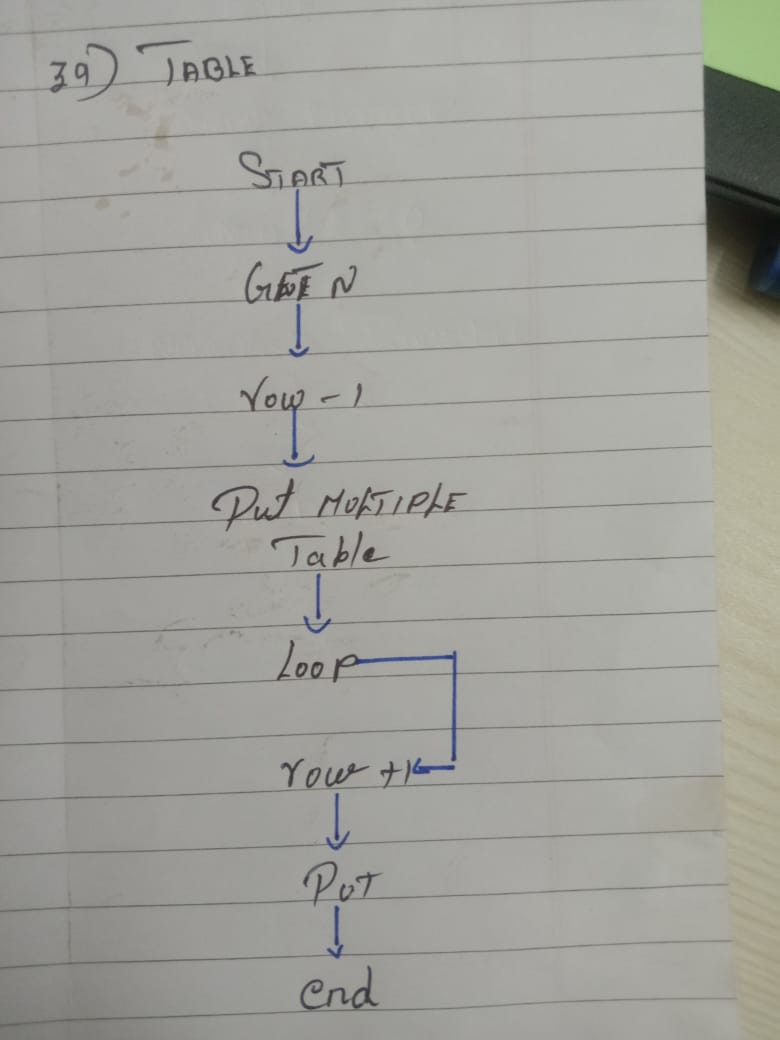 39) TABLE
START
GET N
row - 1
Put MULTIPLE
Table
Loop
row +1
PUT
End